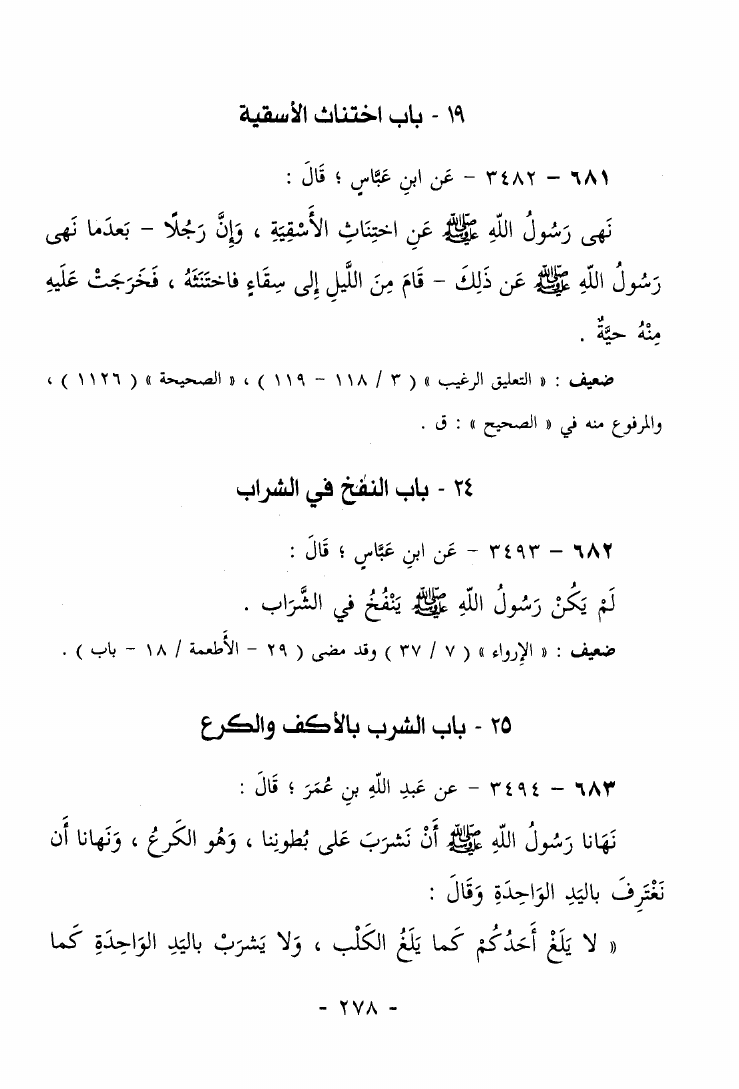 ١٩ - باب اختناث الأسقية
٦٨١ – ٣٤٨٢ – عَن ابنِ عَبَّاسٍ ؛ قَالَ :
نَهى رَسُولُ اللّهِ ﷺ عَنِ اختِنَاثِ الأَسْقِيَةِ ، وَإِنَّ رَجُلًا – بَعدَما نَهى
رَسُولُ اللّهِ ﷺ عَن ذَلِكَ – قَامَ مِنَ اللَّيلِ إِلى سِقَاءٍ فاختَنَثَهُ ، فَخَرَجَتْ عَلَيهِ
مِنْهُ حيَّةٌ .
ضعيف : « التعليق الرغيب » ( ٣ / ١١٨ – ١١٩ ) ، « الصحيحة » ( ١١٢٦ ) ،
والمرفوع منه في « الصحيح » : ق .
٢٤ - باب النفخ في الشراب
٦٨٢ – ٣٤٩٣ – عَن ابنِ عَبَّاسٍ ؛ قَالَ :
لَمْ يَكُنْ رَسُولُ اللّهِ ﷺ يَنْفُخُ في الشَّرَاب .
ضعيف : « الإرواء » ( ٧ / ٣٧ ) وقد مضى ( ٢٩ – الأَطعمة / ١٨ – باب ) .
٢٥ - باب الشرب بالأكف والكرع
٦٨٣ – ٣٤٩٤ – عن عَبدِ اللّهِ بنِ عُمَرَ ؛ قَالَ :
نَهَانا رَسُولُ اللّهِ ﷺ أَنْ نَشرَبَ عَلى بُطونِنا ، وَهُو الكَرعُ ، وَنَهانا أَن
نَغْتَرِفَ باليَدِ الوَاحِدَةِ وَقَالَ :
« لا يَلَغْ أَحَدُكُمْ كَما يَلَغُ الكَلْب ، وَلا يَشرَبْ باليَدِ الوَاحِدَةِ كَما
- ٢٧٨ -